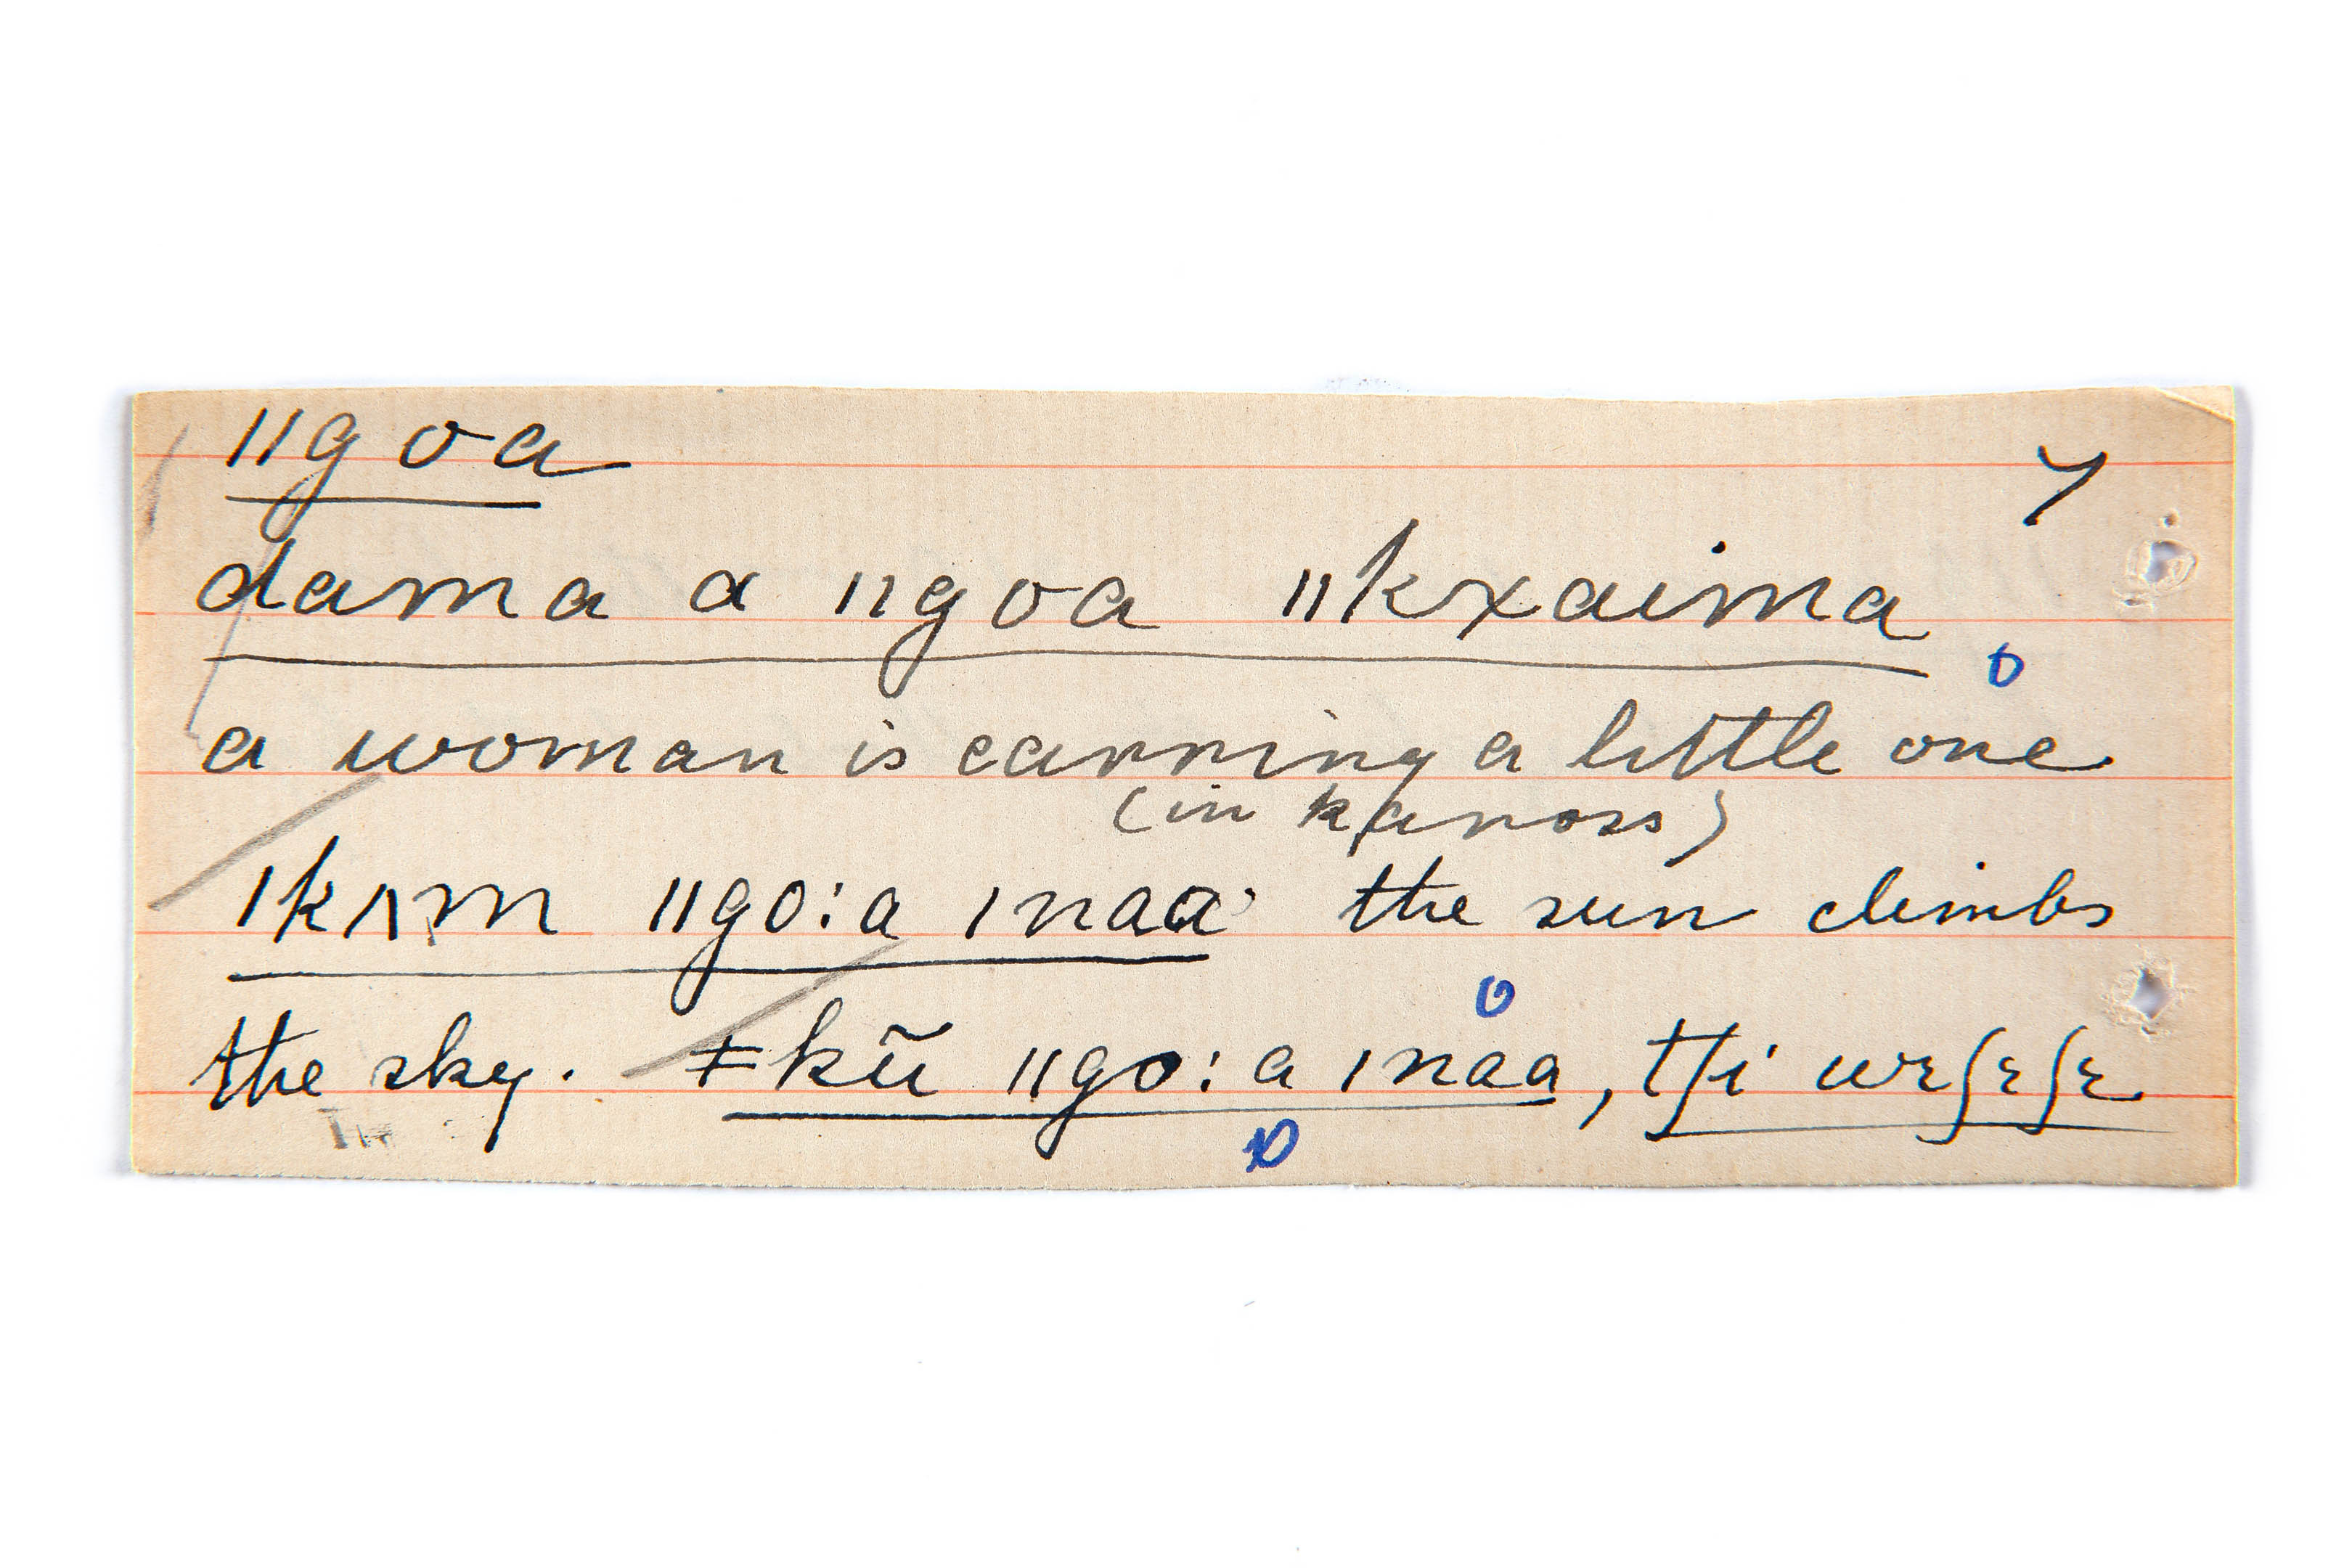 ǁgoa 7
dama a ǁgoa ǁkxaima
a woman is carrying a little one
(in kaross)
ǀkʌm ǁgo:a ǀnaa the sun climbs
the sky. ǂkũ ǁgo:a ǀnaa, tʃi wɛʃɛʃɛ